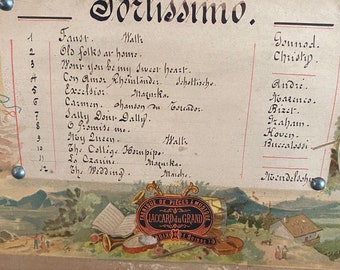 Fortissimo.
1 Faust. Waltz Gounod.
2 Old folks at home. Christy.
3 Wont you be my sweet heart.
4 Con Amor Rheinländer. Schottische. André.
5 Excelsior. Mazurka. Marenco.
6 Carmen. Chanson du Toreador. Bizet.
7 Sally Dom Dally. Graham.
8 O Promise me. Koven.
9 My Queen. Waltz Bucalossi
10 The College Hornpipe.
11 La Czarine. Mazurka.
12 The Wedding. Marche. Mendelssohn
FABRIQUE DE PIÈCES À MUSIQUE
JACCARD DU GRAND